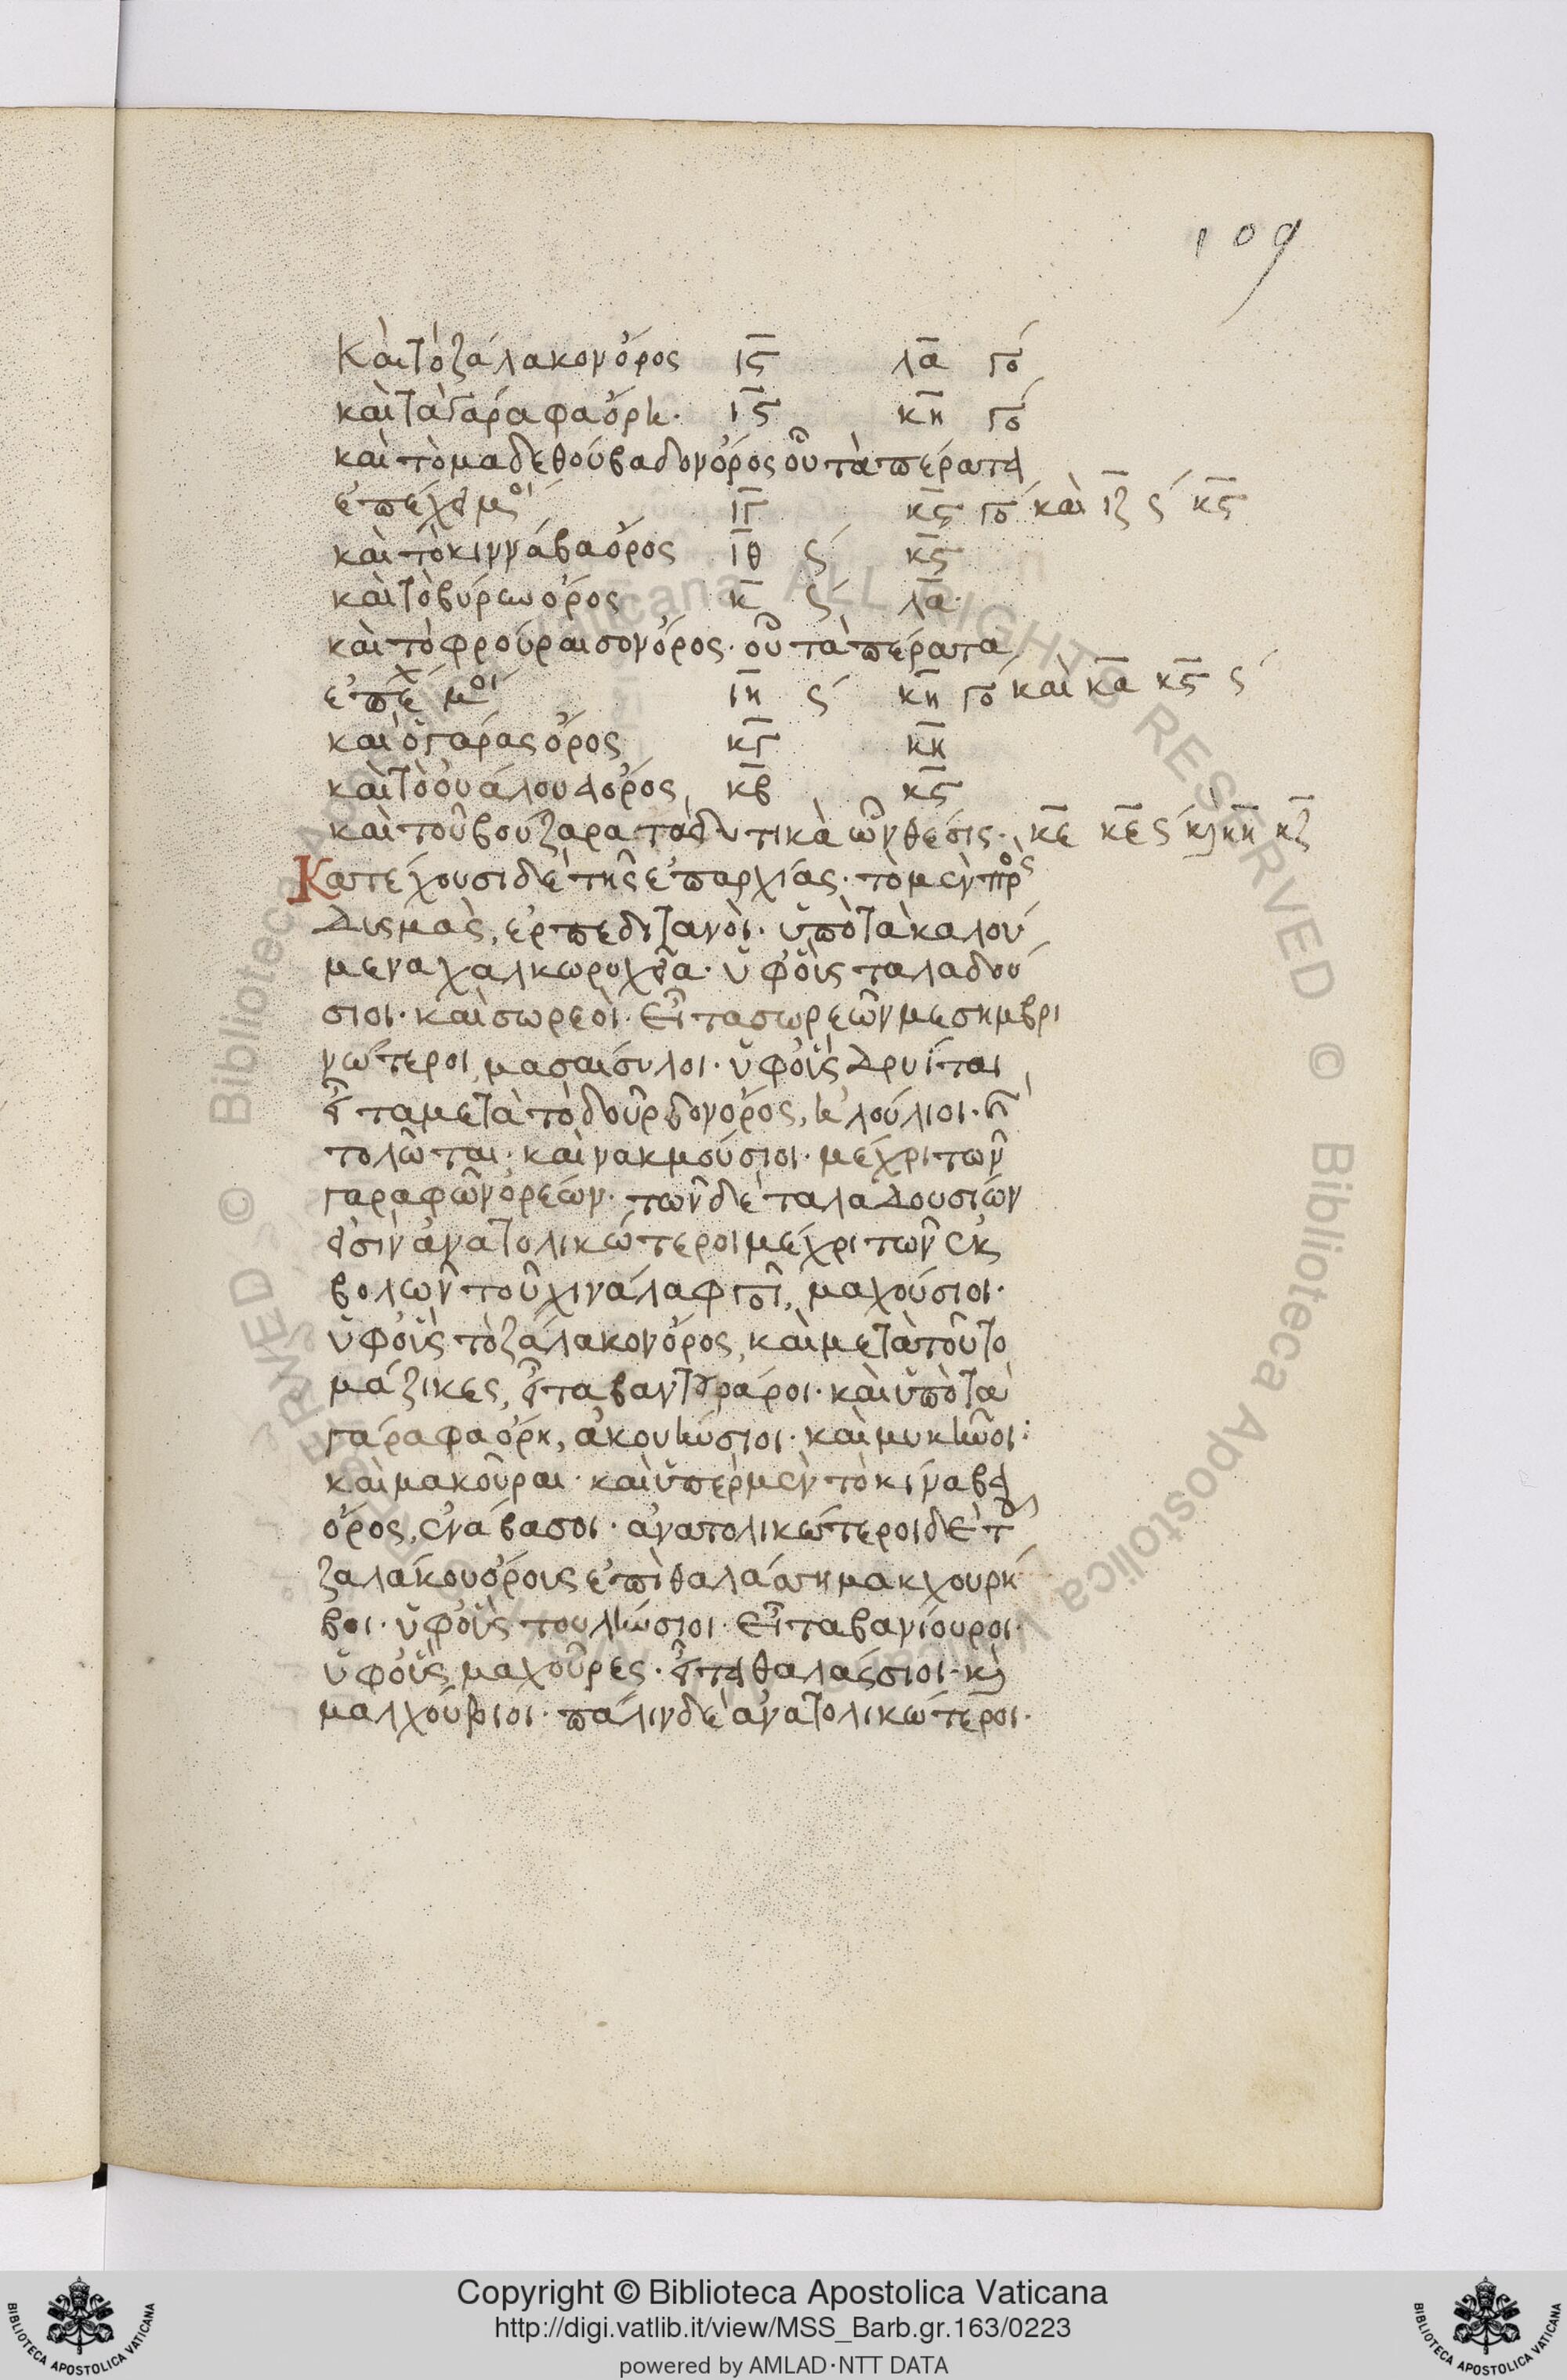 109
καὶ τὸ ζάλακον ὄρος ιϛ λα γο
καὶ τὰ γάραφα ὄρη· ιϛ κη γο
καὶ τὸ μαδεθούβαδον ὄρος οὗ τὰ πέρατα
ἐπέχει μοί ιγ κϛ γο καὶ ιζ ϛ κϛ
καὶ τὸ κιννάβα ὄρος ιθ ϛ κϛ
καὶ τὸ βύρεω ὄρος κ ϛ λα·
καὶ τὸ φρούραισον ὄρος· οὗ τὰ πέρατα
ἐπέχ μοί ιη ϛ κη γο καὶ κα κϛ ϛ
καὶ ὁ γαράς ὄρος κγ κη
καὶ τὸ οὐάλουα ὄρος κβ κϛ
καὶ τοῦ βούζαρα τὰ δυτικὰ ὧν θέσις· κε κε ϛ κὶ κη κζ
Κατέχουσι δὲ τῆς ἐπαρχίας· τὸ μὲν πρὸς
Δυσμὰς, ἑρπεδιτανοὶ· ὑπὸ τὰ καλού
μενα χαλκωρυχεῖα· ὑφ' οἷς ταλαδού
σιοι· καὶ σωρεοὶ· εἶτα σωρεῶν μεσημβρι
νώτεροι, μασαισύλοι· ὑφ' οἷς Δρυίται
εἶτα μετὰ τὸ δοῦρδον ὄρος, ἠλούλιοι· καὶ
τολῶται· καὶ νακμούσιοι· μέχρι τῶν
γαραφῶν ὀρεών· τῶν δὲ ταλαδουσιών
εἰσὶν ἀνατολικώτεροι μέχρι τῶν ἐκ
βολῶν τοῦ χινάλαφ ποῖ, μαχούσιοι·
ὑφ' οἷς τὸ ζάλακον ὄρος, καὶ μετὰ τοῦτο
μάζικες, εἶτα βαντουράροι· καὶ ὑπὸ τὰ
γάραφα ὄρη, ἀκουηύσιοι· καὶ μυκηῶοι·
καὶ μακοῦραι· καὶ ὑπὲρ μὲν τὸ κίναβα
ὄρος, ἐνάβασοι· ἀνατολικώτεροι δὲ τοῦ
ζαλάκου ὄρους ἐπὶ θαλάσσῃ μακχουρή
βοι· ὑφ' οὓς τουληύσιοι· εἶτα βανίουροι·
ὑφ' οὓς μαχοῦρες· εἶτα θαλάσσιοι· κὶ
μαλχούβιοι· πάλιν δὲ ἀνατολικώτεροι·
© Biblioteca Apostolica Vaticana ALL RIGHTS RESERVED
Copyright © Biblioteca Apostolica Vaticana
http://digi.vatlib.it/view/MSS_Barb.gr.163/0223
powered by AMLAD·NTT DATA
BIBLIOTECA APOSTOLICA VATICANA
BIBLIOTECA APOSTOLICA VATICANA